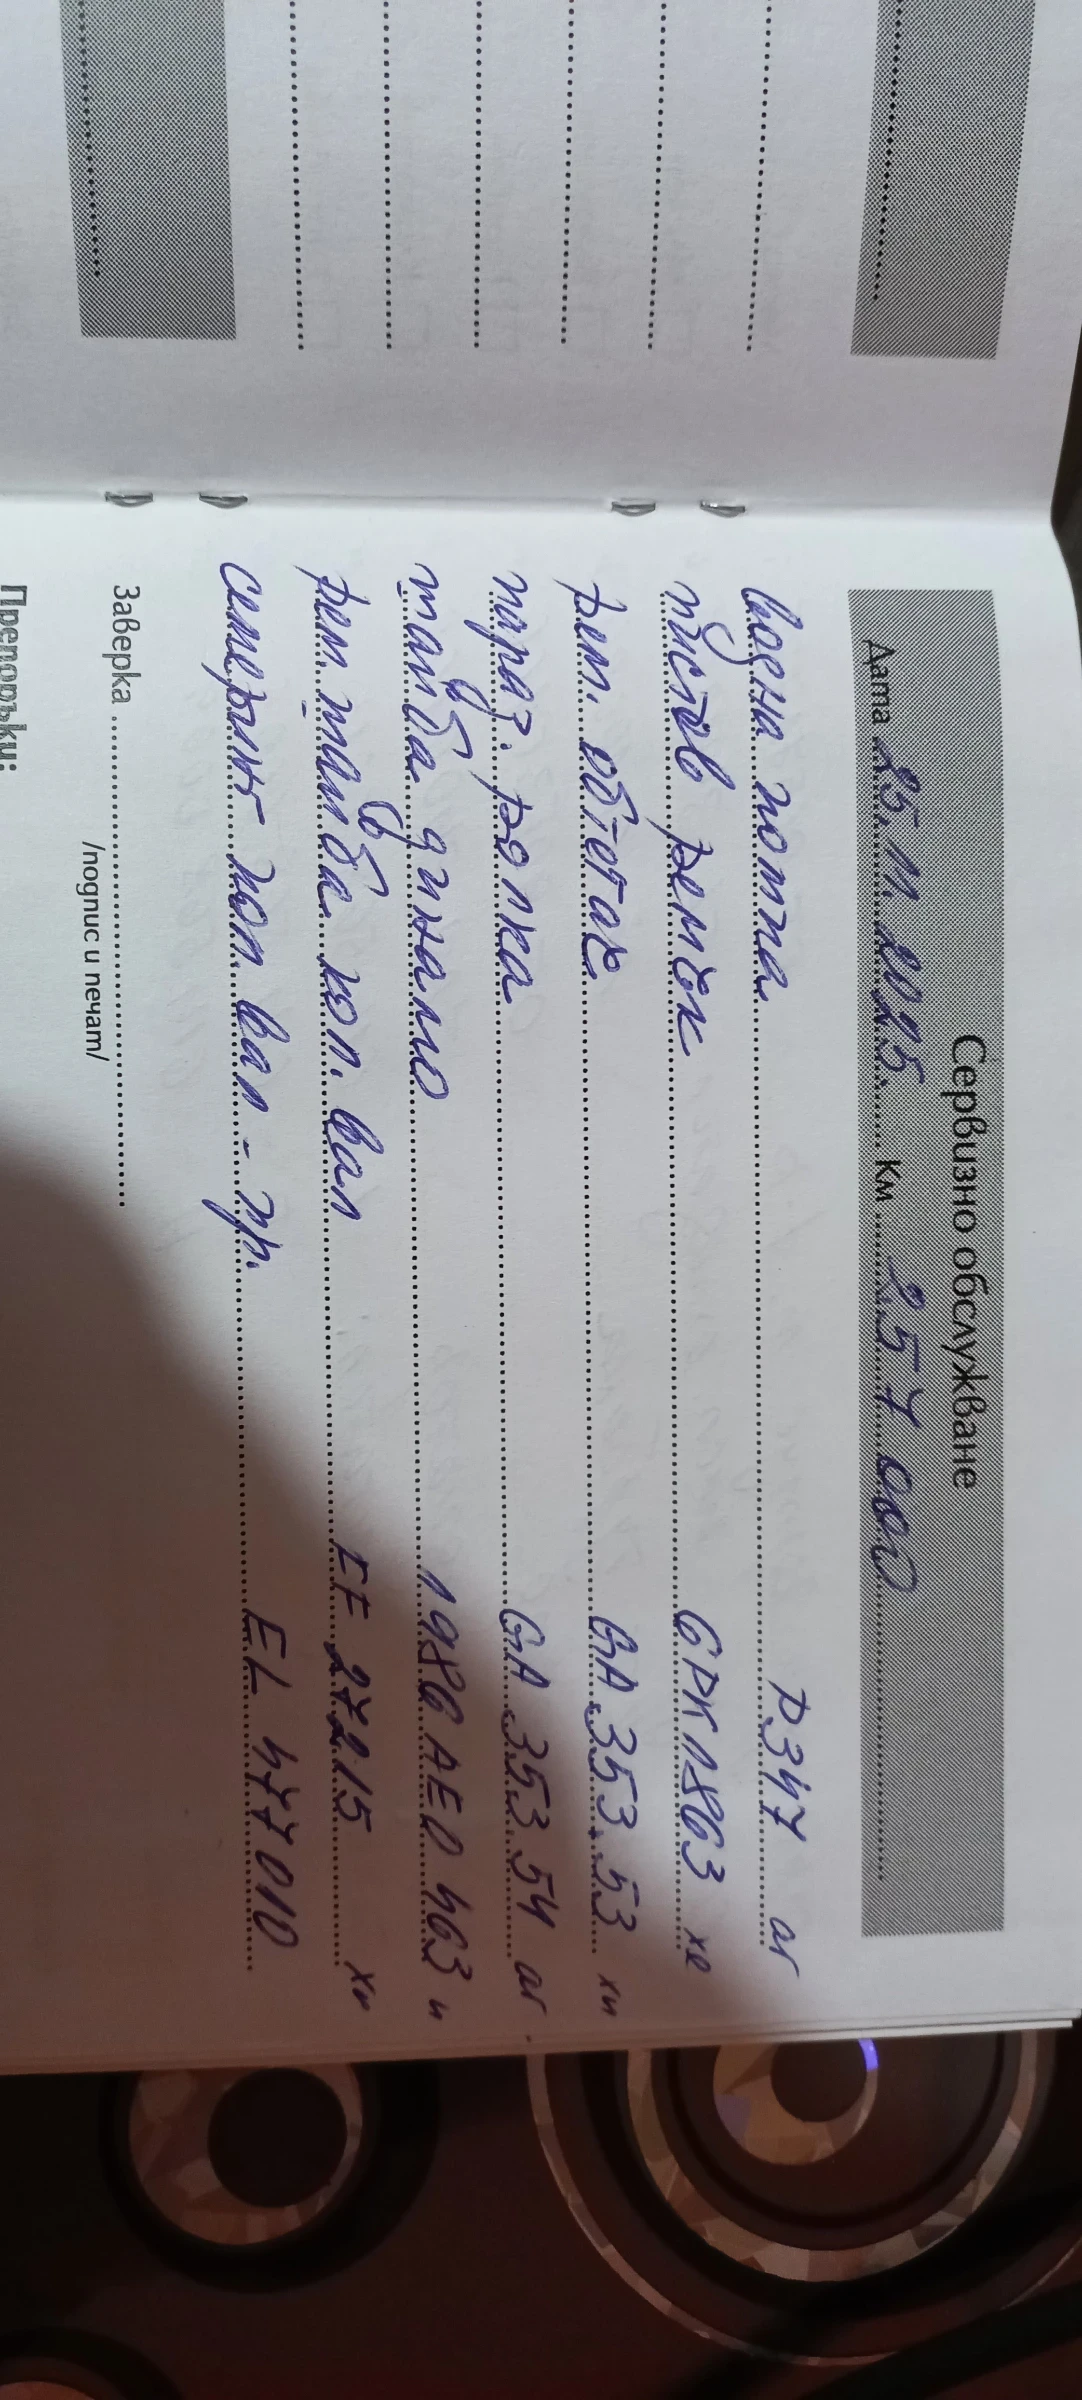 Сервизно обслужване
Дата 25.11.2025. Км 257 000
водна помпа P347 аг
пистов ремък 6PK1863 хе
рем. обтегач GA 353.53 хи
параз. ролка GA 353.54 аг
шайба динамо 1986AE0 463 и
рем. шайба кол. вал EF 27215 хи
семеринг кол. вал - пр. EL 477010
Заверка
/подпис и печат/
Препоръки: